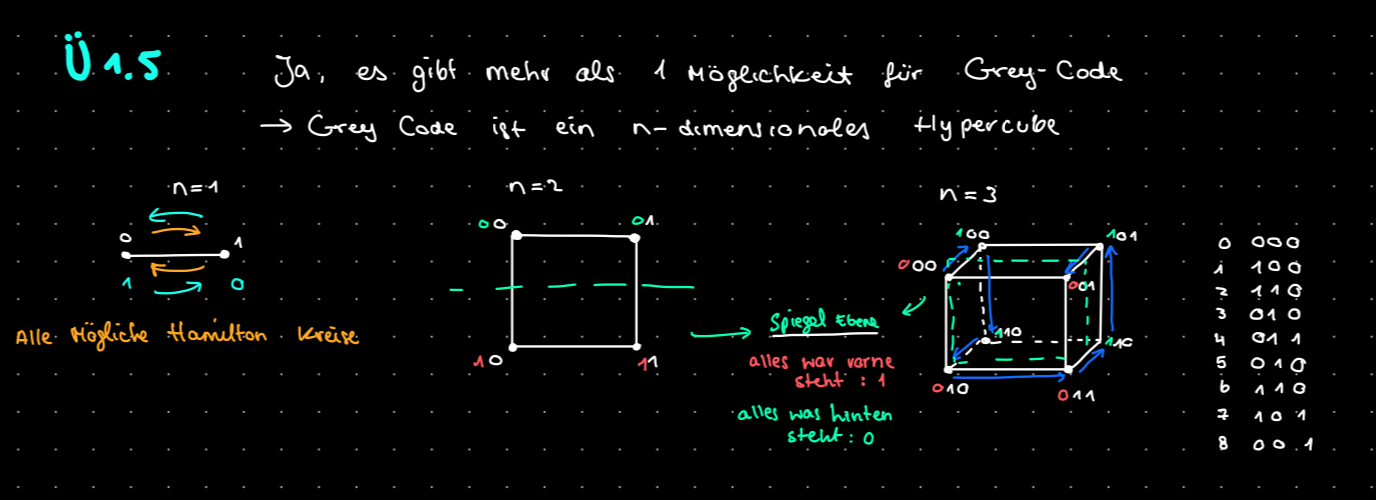 Ü 1.5
Ja, es gibt mehr als 1 Möglichkeit für Grey-Code
→ Grey Code ist ein n-dimensionales Hypercube
n=1
0 1
1 0
Alle Mögliche Hamilton Kreise
n=2
00 01
10 11
Spiegel Ebene
alles war vorne
steht : 1
alles was hinten
steht : 0
n=3
100 101
000 001
110 110
010 011
0 000
1 100
2 110
3 010
4 011
5 010
6 110
7 101
8 001